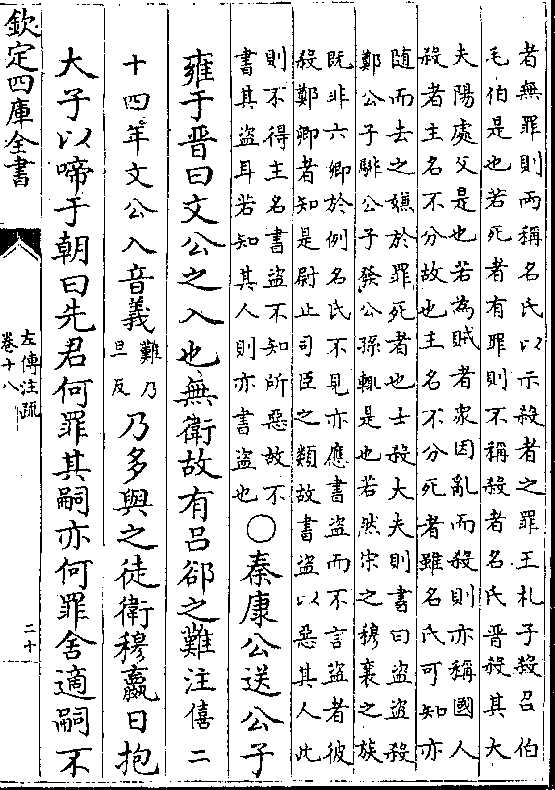 者無罪則兩稱名氏以示殺者之罪王札子殺召伯
毛伯是也若死者有罪則不稱殺者名氏晉殺其大
夫陽處父是也若為賊者衆因亂而殺則亦稱國人
殺者主名不分故也主名不分死者雖名氏可知亦
隨而去之嫌於罪死者也士殺大夫則書曰盜盜殺
鄭公子騑公子發公孫輒是也若然宋之穆襄之族
既非六卿於例名氏不見亦應書盜而不言盜者彼
殺鄭卿者知是尉止司臣之類故書盜以惡其人此
則不得主名書盜不知所惡故不
書其盜耳若知其人則亦書盜也
○秦康公送公子
雍于晉曰文公之入也無衛故有呂郤之難注僖二
十四年文公入音義難乃旦反乃多與之徒衛穆嬴日抱
大子以啼于朝曰先君何罪其嗣亦何罪舍適嗣不
欽定四庫全書
左傳注疏
卷十八
二十